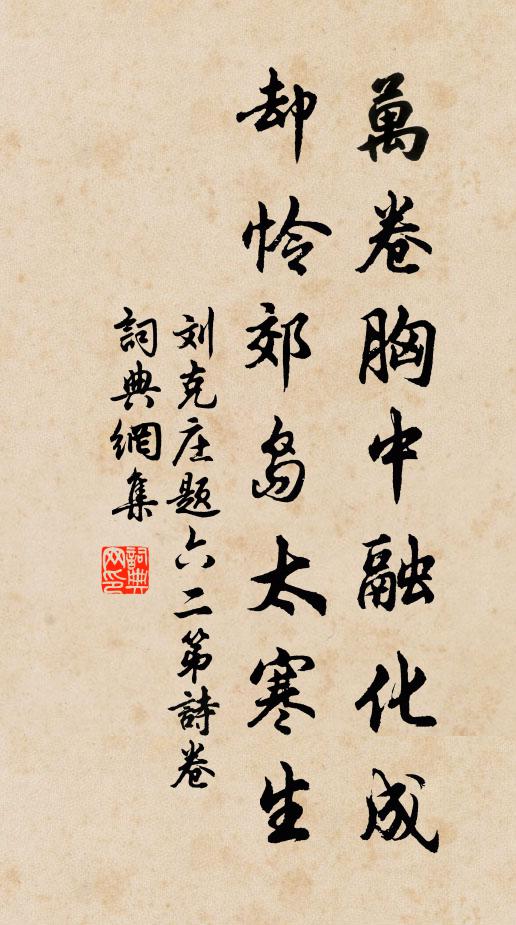 萬卷胸中融化成
却怜郊岛太寒生
刘克庄题六二第詩卷
詞典網集
詞典网印